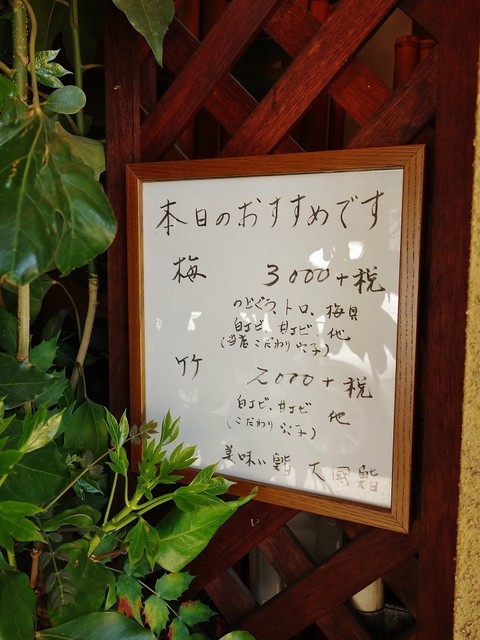 本日のおすすめです
梅 3000+税
のどぐろ、トロ、梅貝
白エビ、甘エビ 他
(当店こだわり穴子)
竹 2000+税
白エビ、甘エビ 他
(こだわり穴子)
美味い鮨 大国鮨